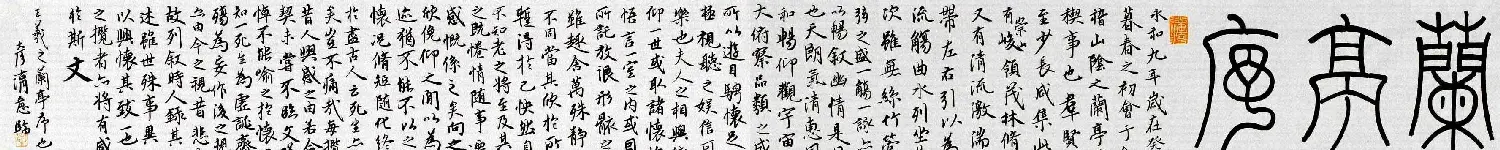 蘭亭序
永和九年歲在癸
暮春之初會于會
稽山陰之蘭亭
禊事也羣賢
至少長咸集此
有崇山峻領茂林脩
又有清流激湍
帶左右引以為
流觴曲水列坐
次雖無絲竹管
弦之盛一觴一詠
以暢叙幽情是
也天朗氣清惠風
和暢仰觀宇宙
大俯察品類之盛
所以遊目騁懷足
極視聽之娛信可
樂也夫人之相與
仰一世或取諸懷
悟言一室之內或因
所託放浪形骸之
雖趣舍萬殊靜
不同當其欣於所
蹔得於己怏然自
不知老之將至及其
之既惓情隨事遷
感慨係之矣向之
欣俛仰之閒以為
迹猶不能不以之
懷況脩短隨化終
於盡古人云死生
矣豈不痛哉每攬
昔人興感之由若合
契未嘗不臨文
悼不能喻之於懷
知一死生為虛誕齊
殤為妄作後之視
今由今之視昔悲
故列叙時人錄其
述雖世殊事異
以興懷其致一也
之攬者亦將有感
於斯文
王羲之蘭亭序也